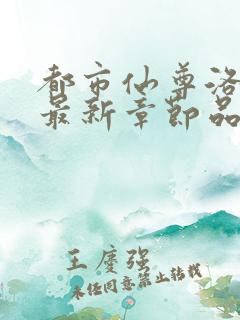 都市仙尊洛
最新章节品
王庆强
未经同意禁止转载